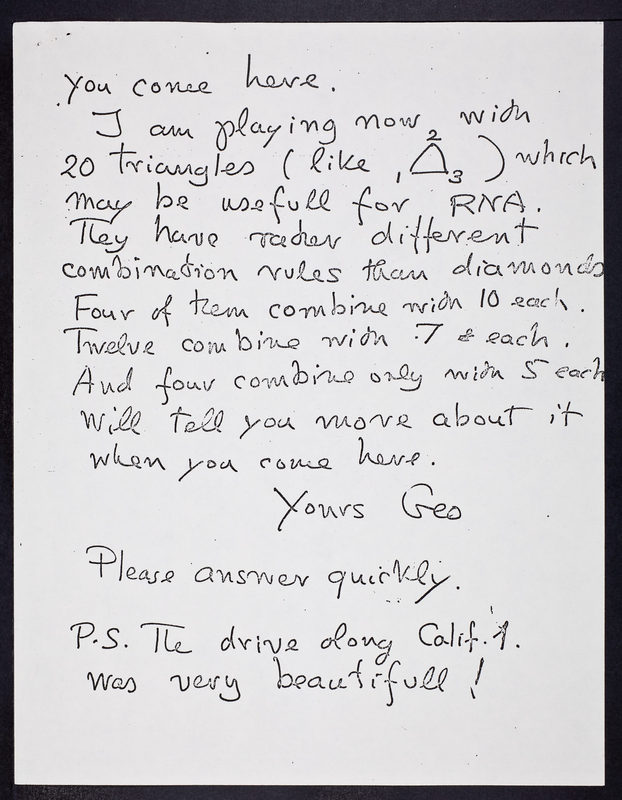 you come here.
I am playing now with
20 triangles (like 1△2 3) which
may be usefull for RNA.
They have rather different
combination rules than diamonds
Four of them combine with 10 each.
Twelve combine with 7 each.
And four combine only with 5 each
Will tell you more about it
when you come here.
Yours Geo
Please answer quickly.
P.S. The drive along Calif. 1.
was very beautifull!